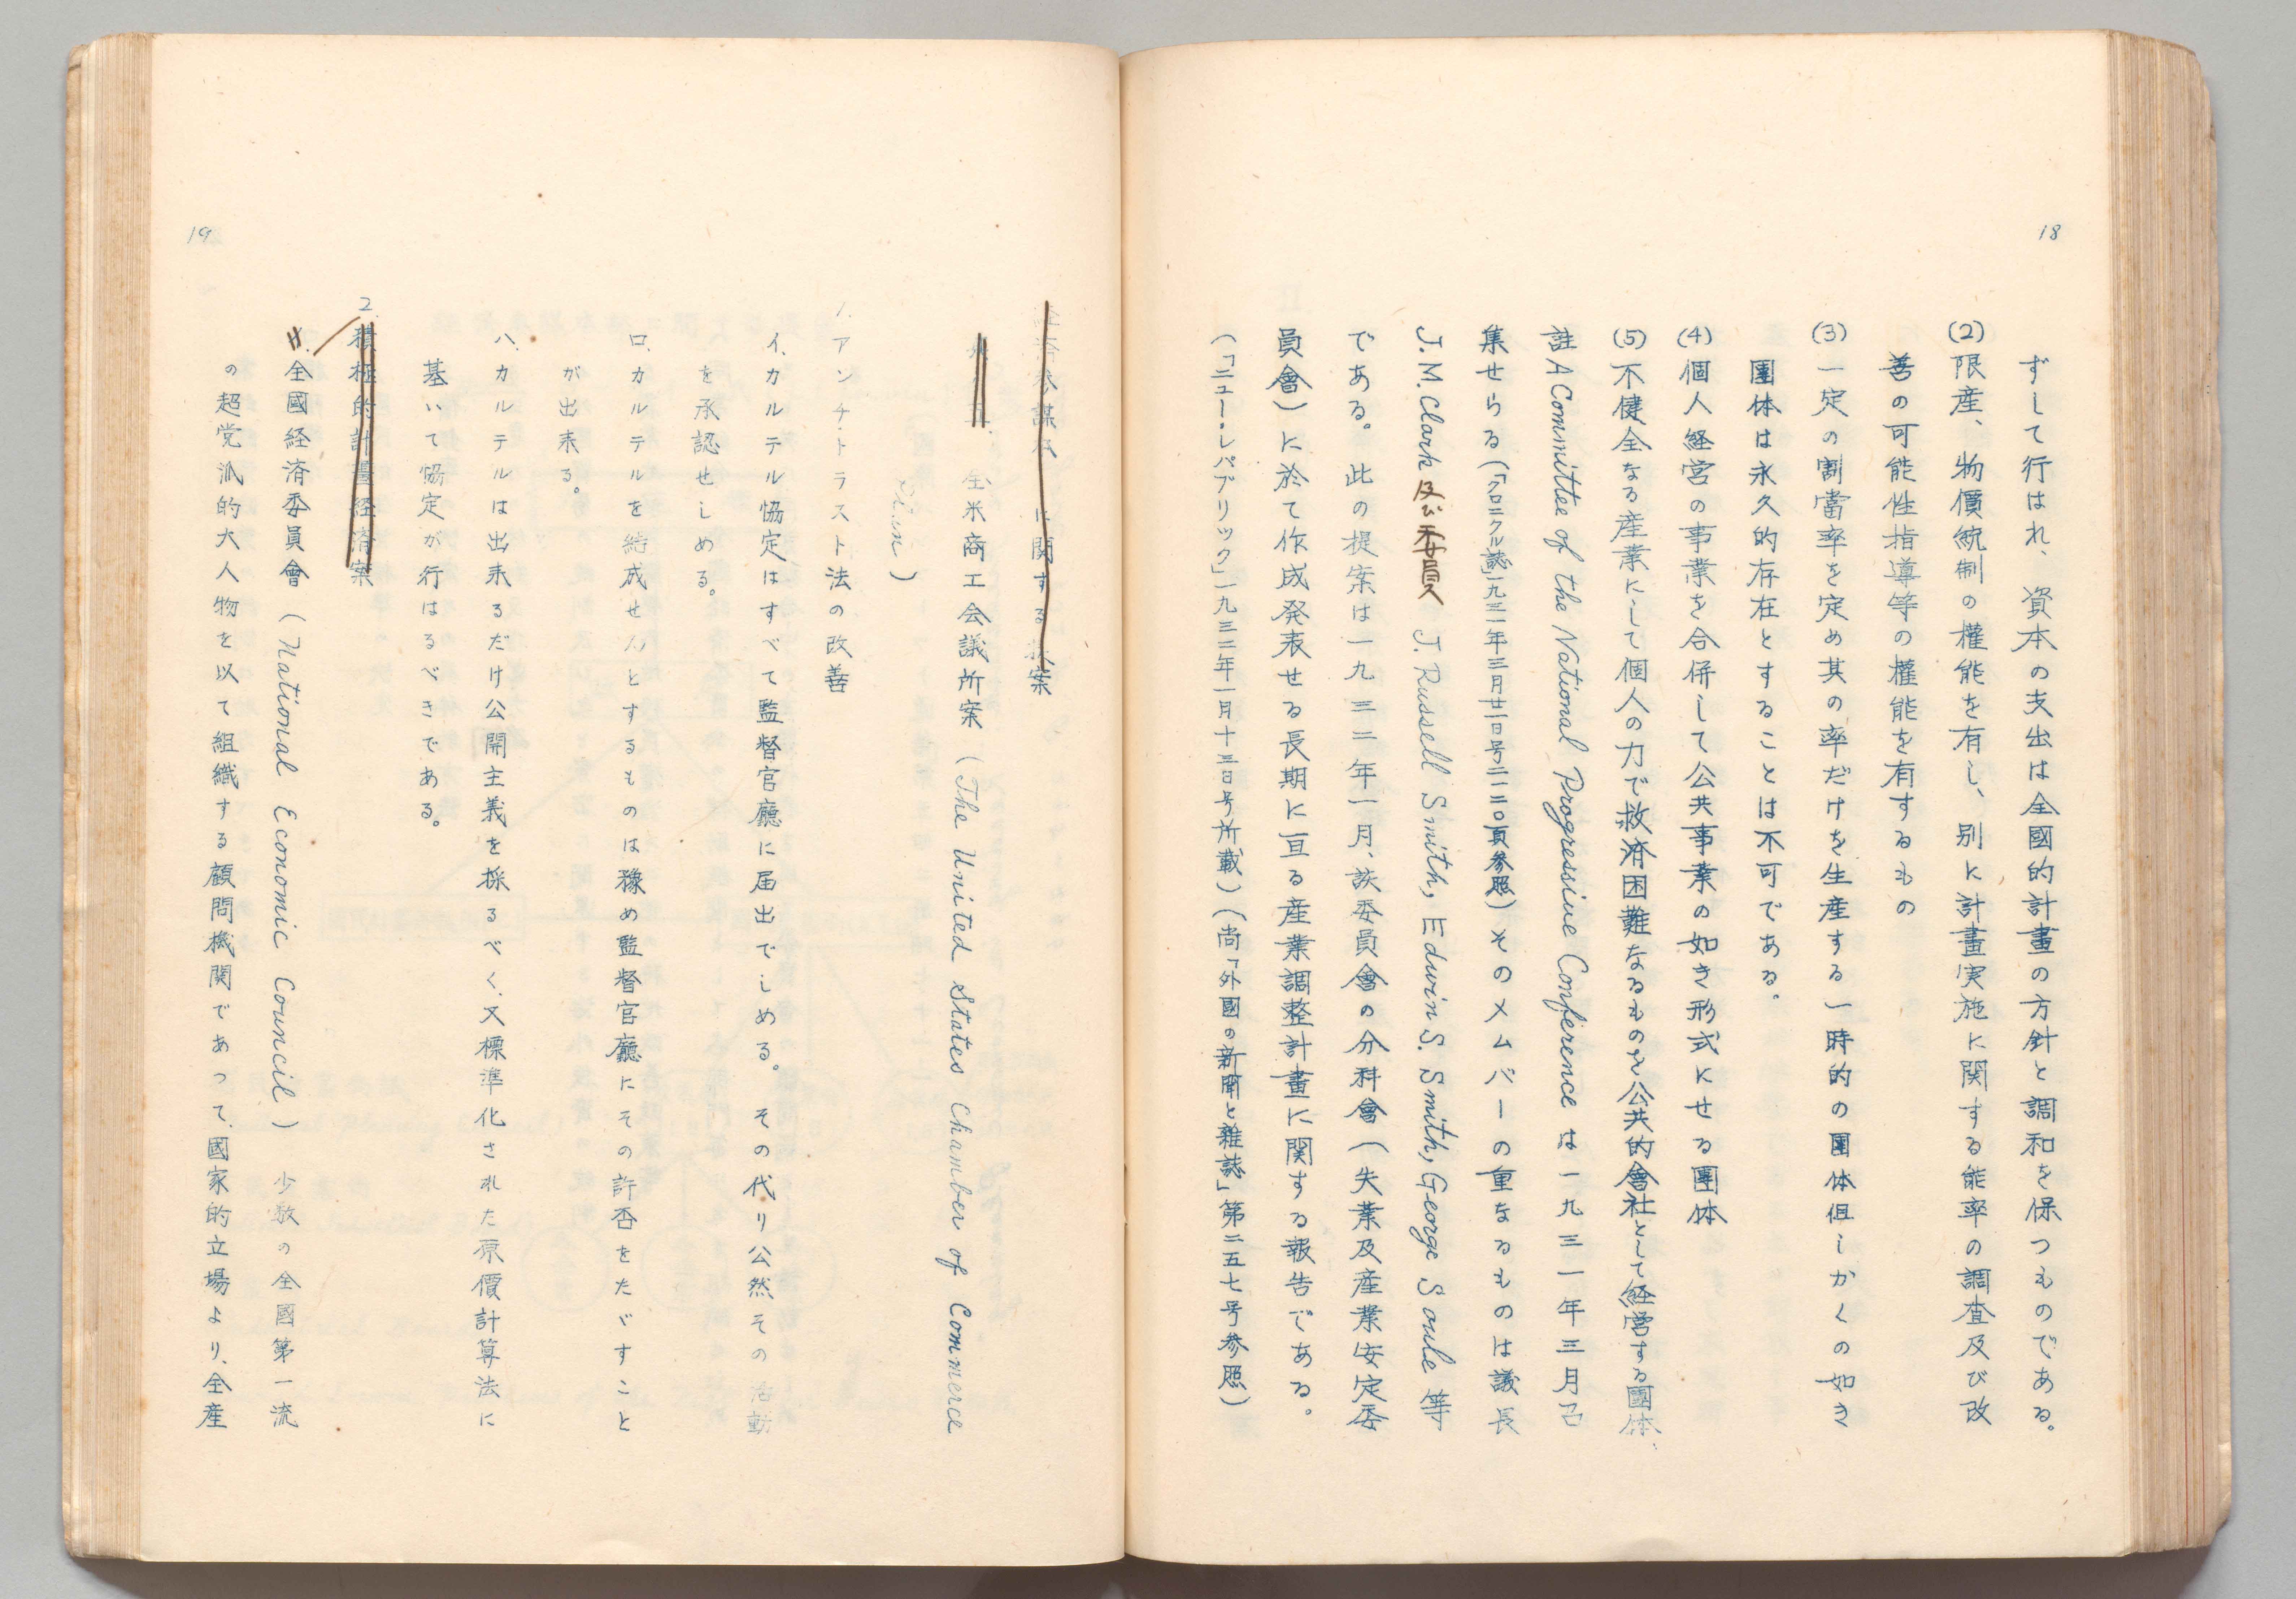 18
ずして行はれ、資本の支出は全國的計畫の方針と調和を保つものである。
(2) 限産、物價統制の權能を有し、別に計畫実施に関する能率の調査及び改
善の可能性指導等の權能を有するもの
(3) 一定の割當率を定め其の率だけを生産する一時的の團体但しかくの如き
團体は永久的存在とすることは不可である。
(4) 個人経営の事業を合併して公共事業の如き形式にせる團体
(5) 不健全なる産業にして個人の力で救済困難なるものを公共的會社として経営する團体、
註 A Committee of the National Progressive Conference は一九三一年三月召
集せらる（「クロニクル誌」一九三一年三月廿一日号二一二〇頁参照）そのメムバーの重なるものは議長
J. M. Clark 及び委員 J. Russell Smith, Edwin S. Smith, George Soule 等
である。此の提案は一九三二年一月、該委員會の分科會（失業及産業安定委
員會）に於て作成発表せる長期に亘る産業調整計畫に関する報告である。
（「ニュー・レパブリック」一九三二年一月十三日号所載）（尚「外國の新聞と雜誌」第二五七号参照）
19
経済参謀本 に関する 案
全米商工会議所案（The United States Chamber of Commerce
Plan）
1. アンチ・トラスト法の改善
イ. カルテル協定はすべて監督官廳に届出でしめる。その代り公然その活動
を承認せしめる。
ロ. カルテルを結成せんとするものは豫め監督官廳にその許否をたゞすこと
が出来る。
ハ. カルテルは出来るだけ公開主義を採るべく、又標準化された原價計算法に
基いて協定が行はるべきである。
2. 積極的計畫経済案
全國経済委員會（National Economic Council）少数の全國第一流
の超党派的大人物を以て組織する顧問機関であって、國家的立場より、全産